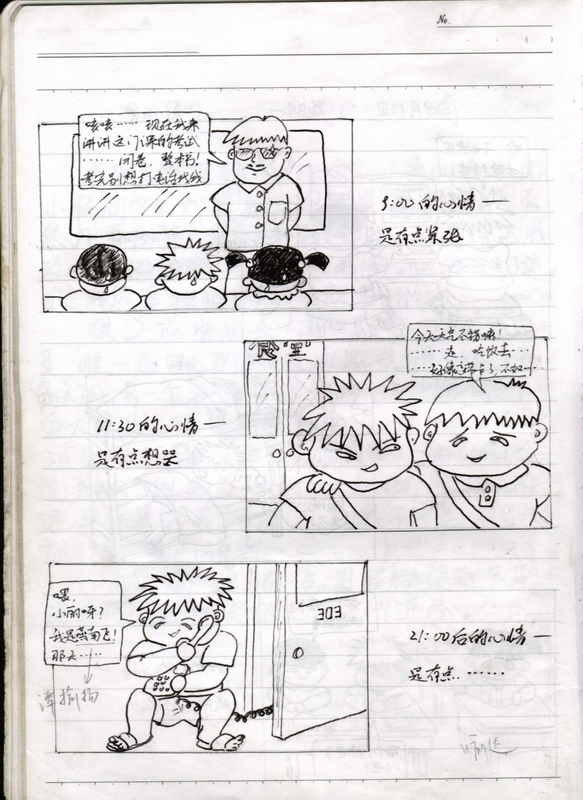 No.
( )
咳咳……现在我来
讲讲这门课的考试
……闭卷，整本书！
考完别想打电话找我
9:00的心情——
是有点紧张
今天天气不错嘛！
……是，吃饭去……
食堂
11:30的心情——
是有点想哭
喂，
小丽呀？
我是燕南飞！
那天……
303
21:00后的心情——
是有点……